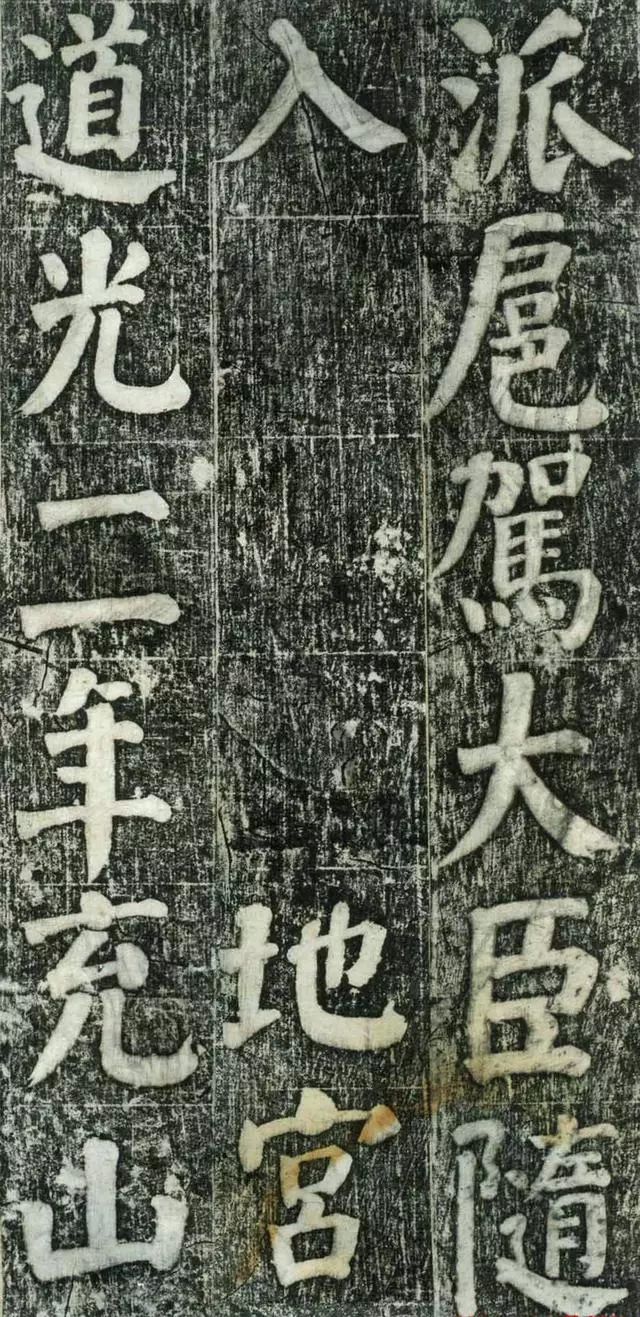 派扈駕大臣隨
入地宮
道光二年充山